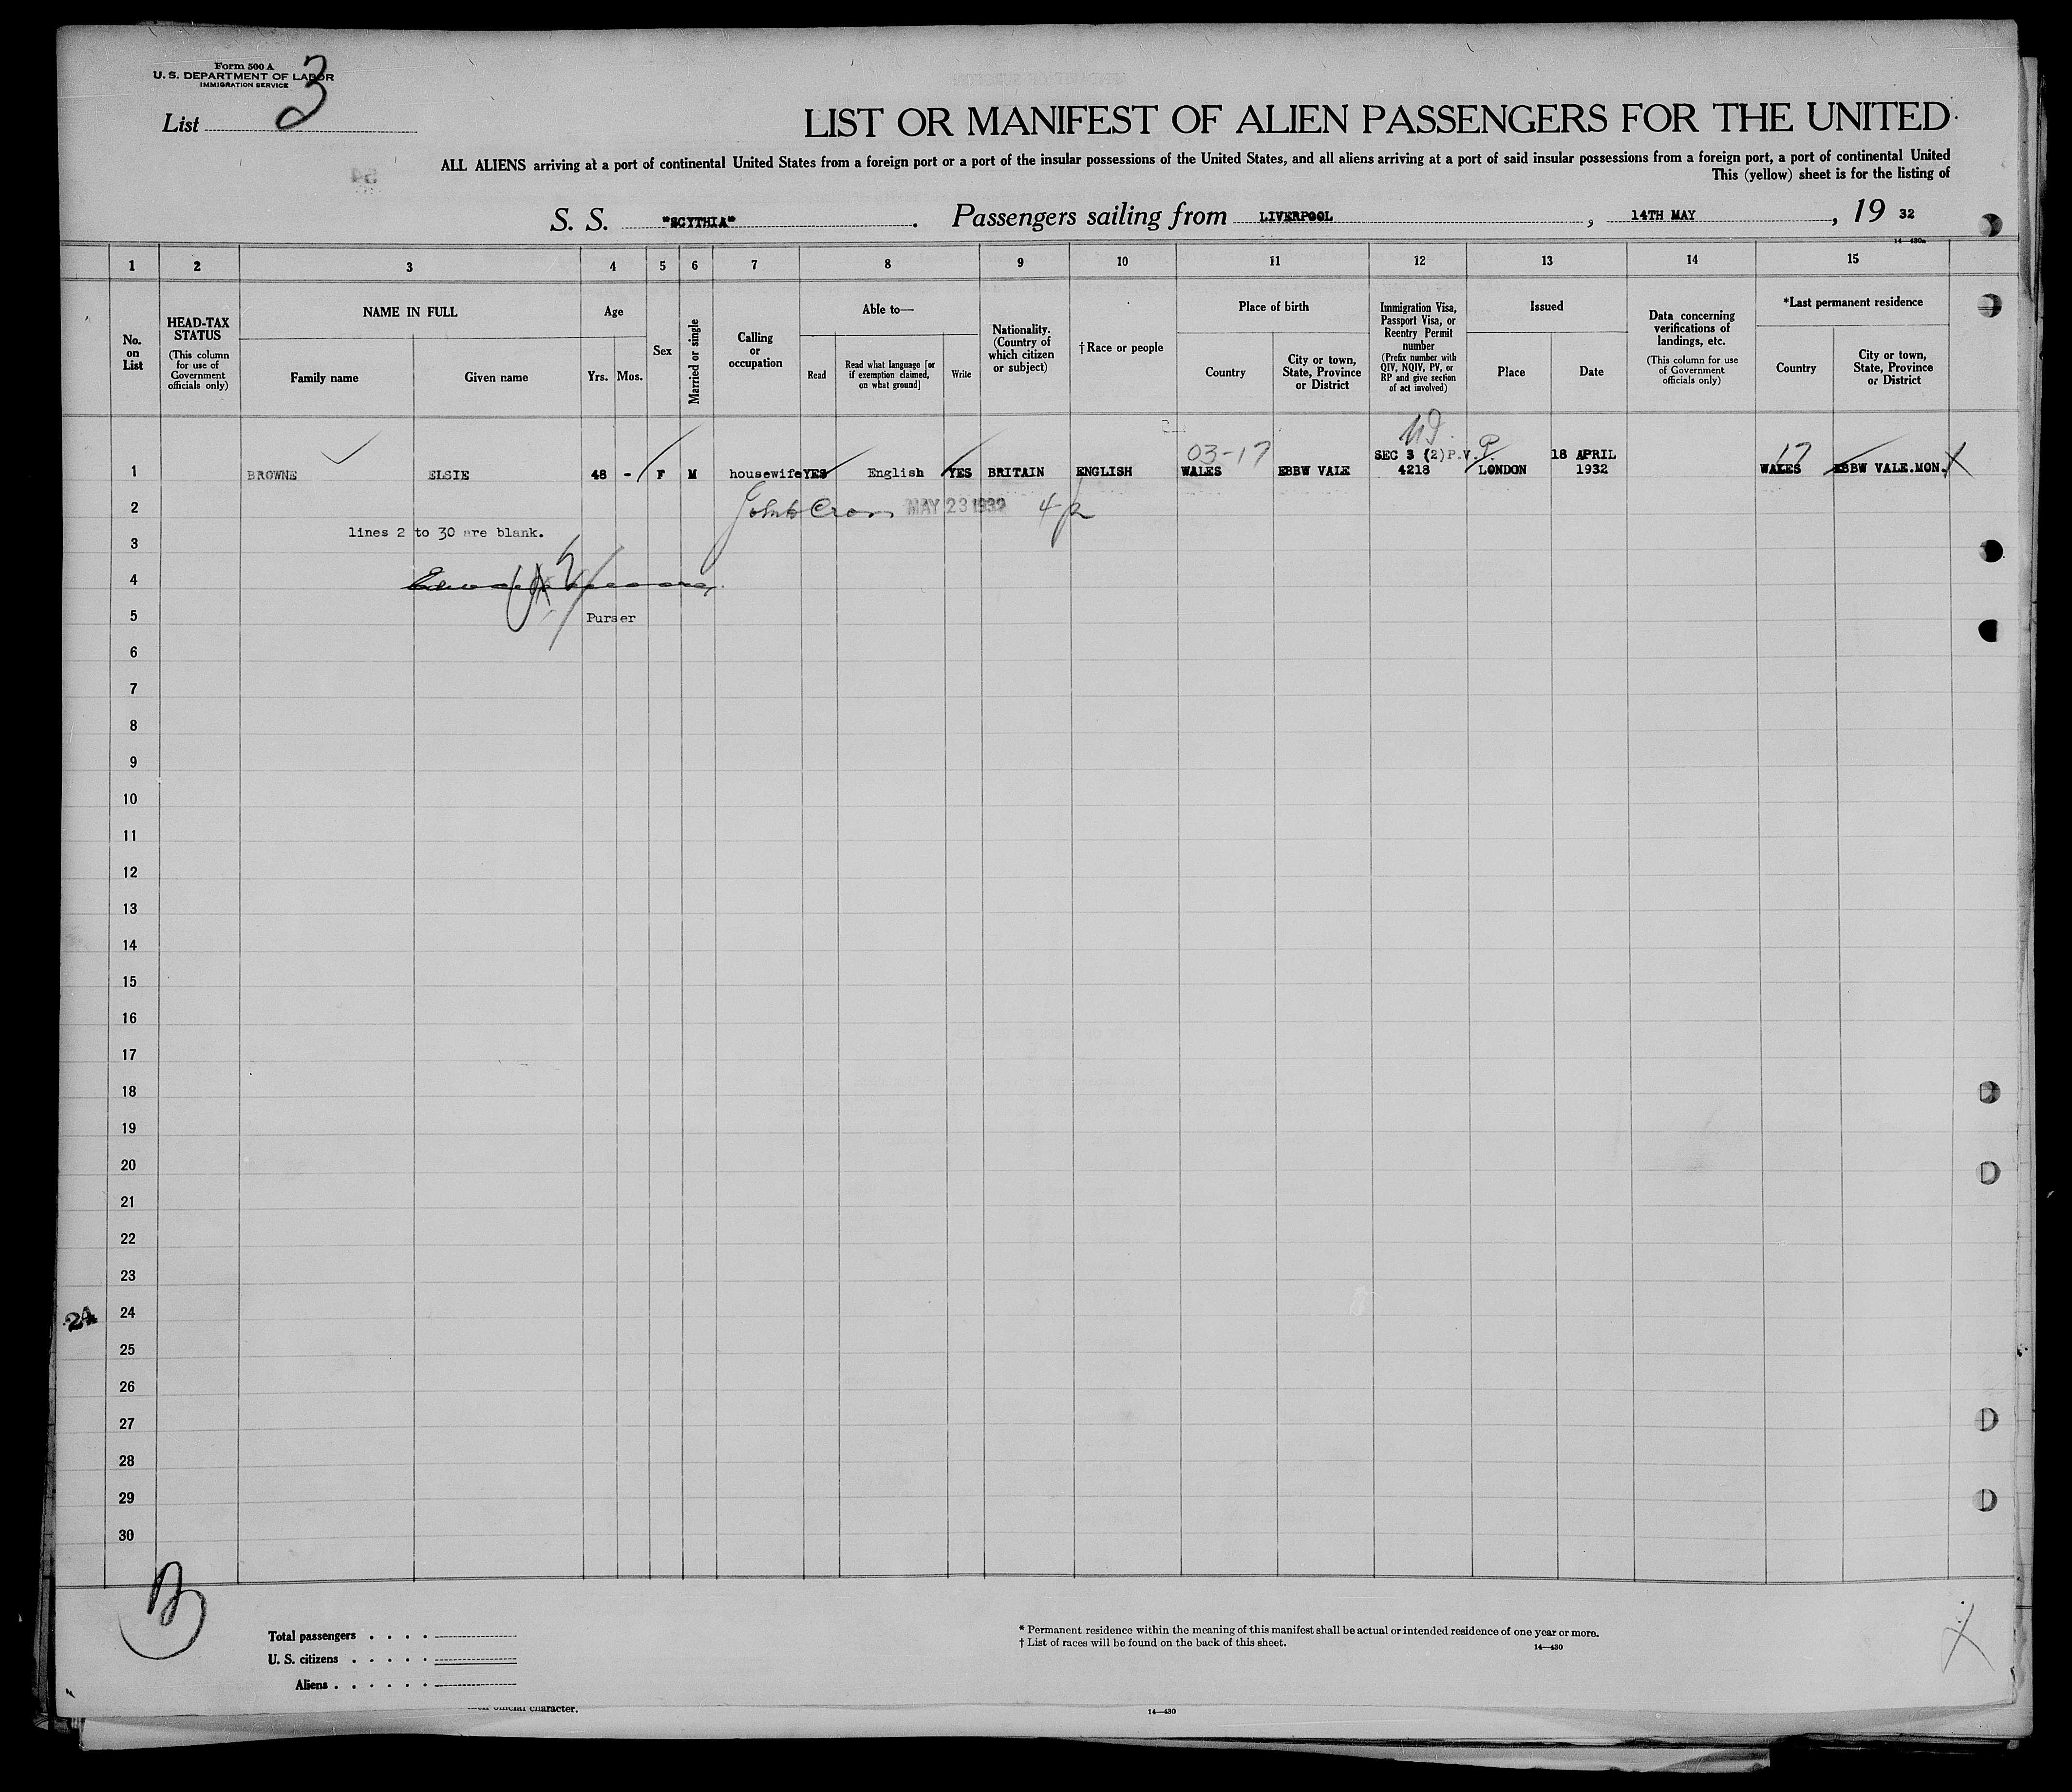 Form 500 A
U. S. DEPARTMENT OF LABOR
IMMIGRATION SERVICE
List 3
LIST OR MANIFEST OF ALIEN PASSENGERS FOR THE UNITED
ALL ALIENS arriving at a port of continental United States from a foreign port or a port of the insular possessions of the United States, and all aliens arriving at a port of said insular possessions from a foreign port, a port of continental United
This (yellow) sheet is for the listing of
S. S. "SCYTHIA". Passengers sailing from LIVERPOOL, 14TH MAY, 19 32
14—430a
1 2 3 4 5 6 7 8 9 10 11 12 13 14 15
No. on List
HEAD-TAX STATUS
(This column for use of Government officials only)
NAME IN FULL
Family name
Given name
Age
Yrs.
Mos.
Sex
Married or single
Calling or occupation
Able to—
Read
Read what language [or if exemption claimed, on what ground]
Write
Nationality. (Country of which citizen or subject)
†Race or people
Place of birth
Country
City or town, State, Province or District
Immigration Visa, Passport Visa, or Reentry Permit number
(Prefix number with QIV, NQIV, PV, or RP and give section of act involved)
Issued
Place
Date
Data concerning verifications of landings, etc.
(This column for use of Government officials only)
*Last permanent residence
Country
City or town, State, Province or District
03-17 SEC 3 (2)P.V. P. 18 APRIL 17
1 BROWNE ELSIE 48 - F M housewife YES English YES BRITAIN ENGLISH WALES EBBW VALE 4218 LONDON 1932 WALES EBBW VALE.MON.
2 MAY 23 1932
lines 2 to 30 are blank.
3
4
5 Purser
6
7
8
9
10
11
12
13
14
15
16
17
18
19
20
21
22
23
24 24
25
26
27
28
29
30
B
Total passengers . . . .
U. S. citizens . . . . .
Aliens . . . . . .
* Permanent residence within the meaning of this manifest shall be actual or intended residence of one year or more.
† List of races will be found on the back of this sheet.
14—430
official character.
14—430